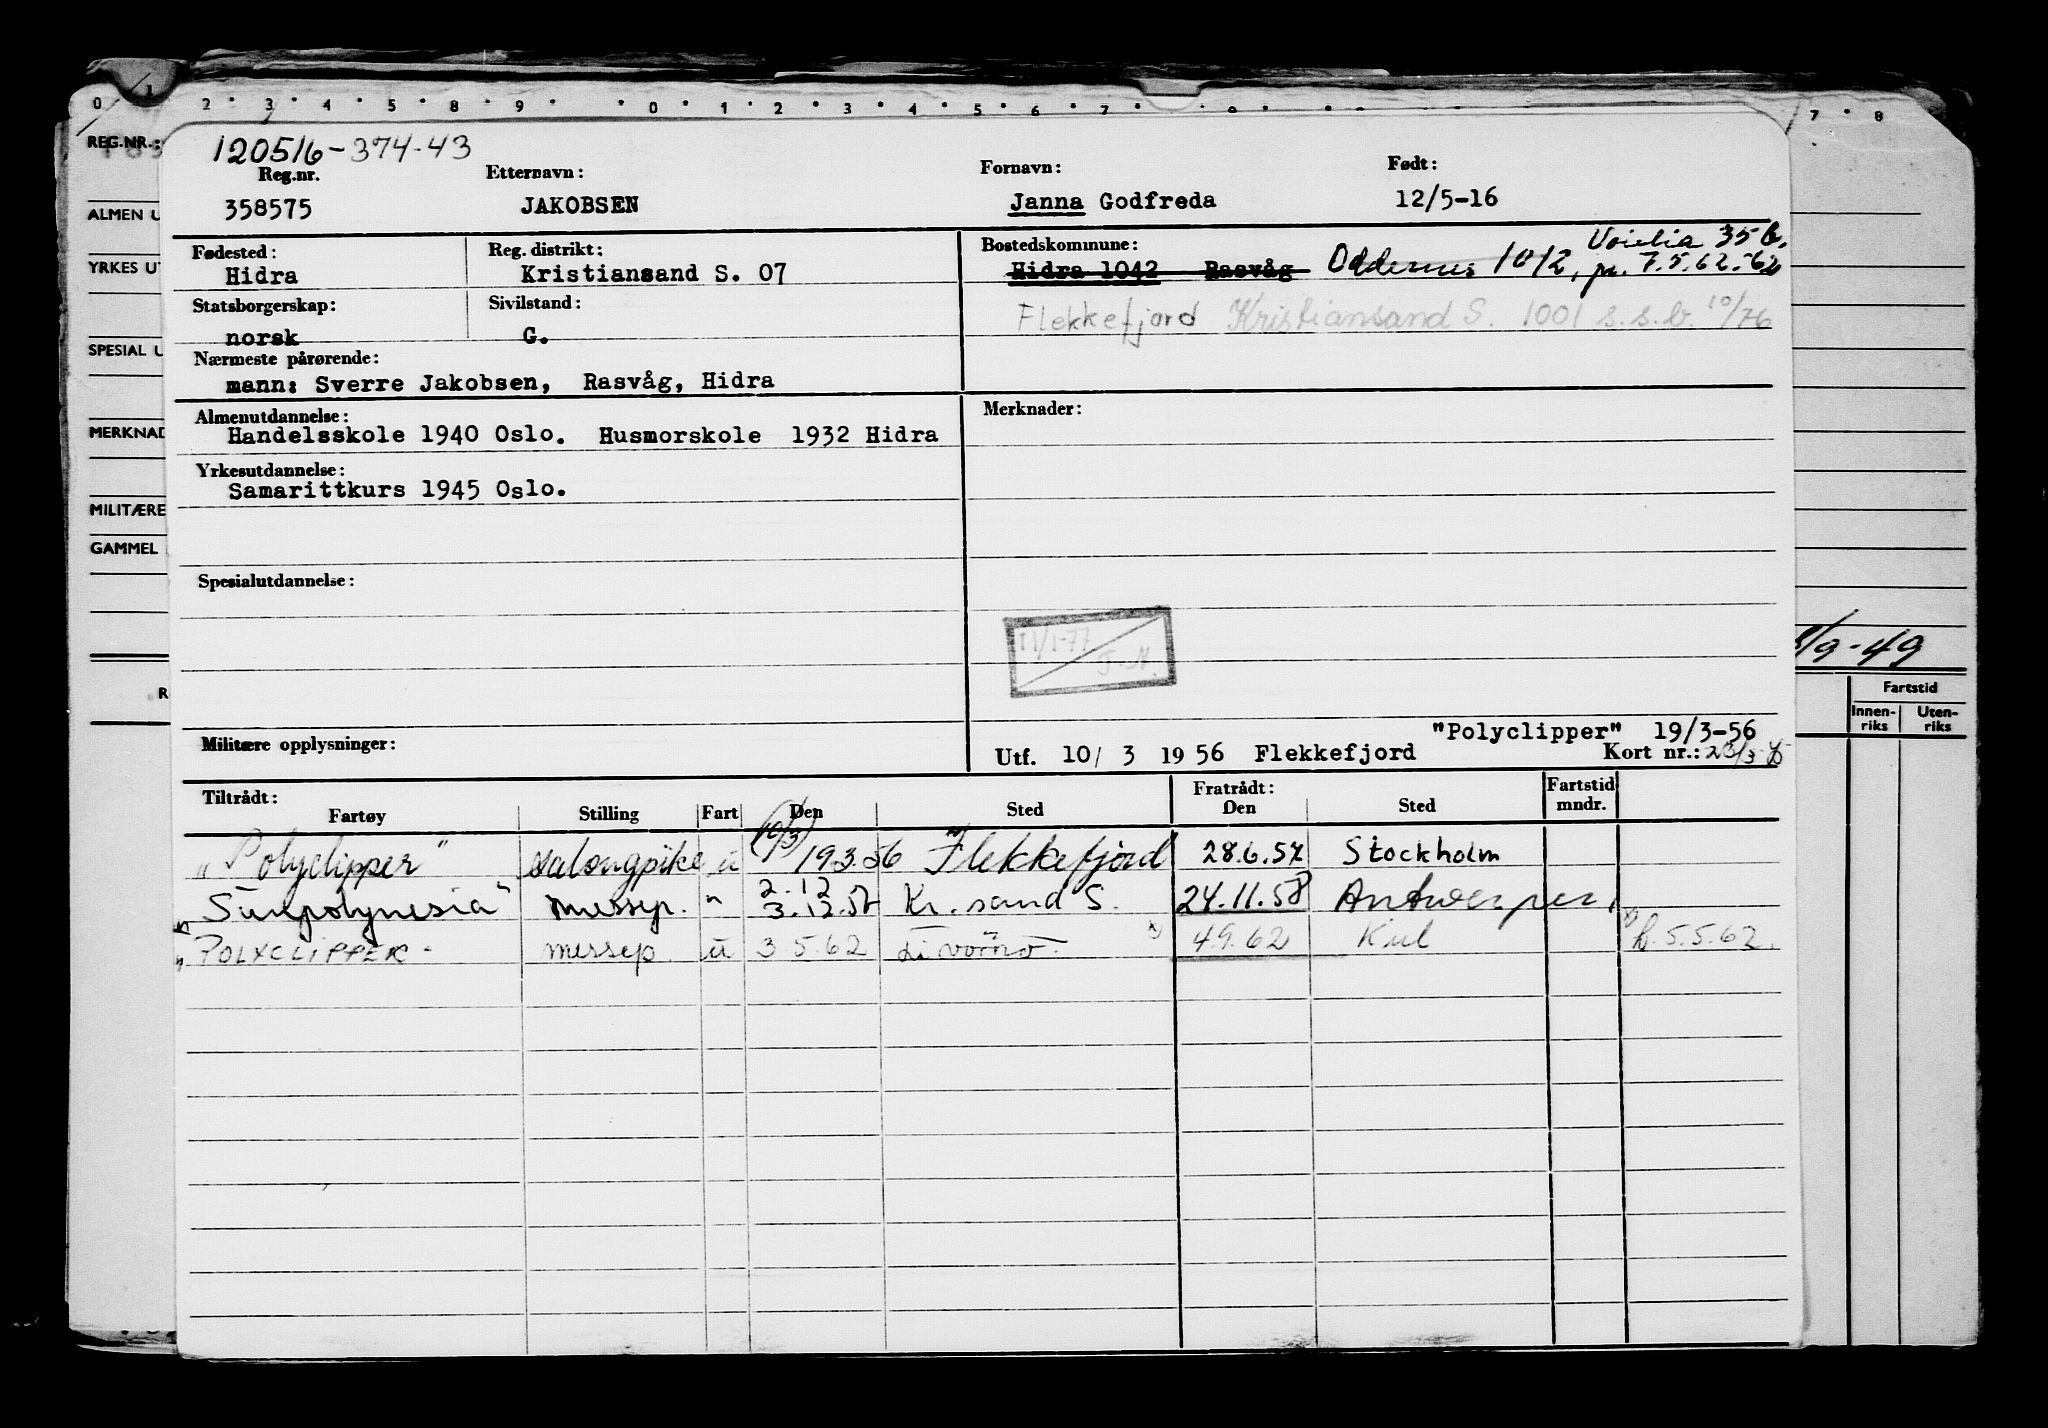 0 1 2 3 4 5 8 9 0 1 2 3 4 5 6 7 7 8
REG.NR.:
120516-374-43
Reg.nr. Etternavn: Fornavn: Født:
358575 JAKOBSEN Janna Godfreda 12/5-16
ALMEN U
Fødested: Reg. distrikt: Bostedskommune: 35 b.
YRKES UT Hidra Kristiansand S. 07 Hidra 1042 Rasvåg Oddernes 1012, pr. 7.5.62.
Statsborgerskap: Sivilstand: Flekkefjord Kristiansand S. 1001 s.s.b. 10/76
norsk G.
SPESIAL U
Nærmeste pårørende:
mann: Sverre Jakobsen, Rasvåg, Hidra
Almenutdannelse: Merknader:
MERKNAD Handelsskole 1940 Oslo. Husmorskole 1932 Hidra
Yrkesutdannelse:
Samarittkurs 1945 Oslo.
MILITÆRE
GAMMEL
Spesialutdannelse:
11/1-77
/9-49
Fartstid
Innen-riks Uten-riks
"Polyclipper" 19/3-56
Militære opplysninger: Utf. 10/ 3 19 56 Flekkefjord Kort nr.:
Tiltrådt: Fratrådt: Fartstid
Fartøy Stilling Fart Den Sted Den Sted mndr.
(10/3)
"Polyclipper" salongpike u 19.3.56 Flekkefjord 28.6.57 Stockholm
2.12
"Sunpolynesia" messep. " 3.12.57 Kr.sand S. 24.11.58 Antwerpen
"POLYCLIPPER" messep. u 3 5.62 Livorno x) 4.9.62 Kiel x) h. 5.5.62.